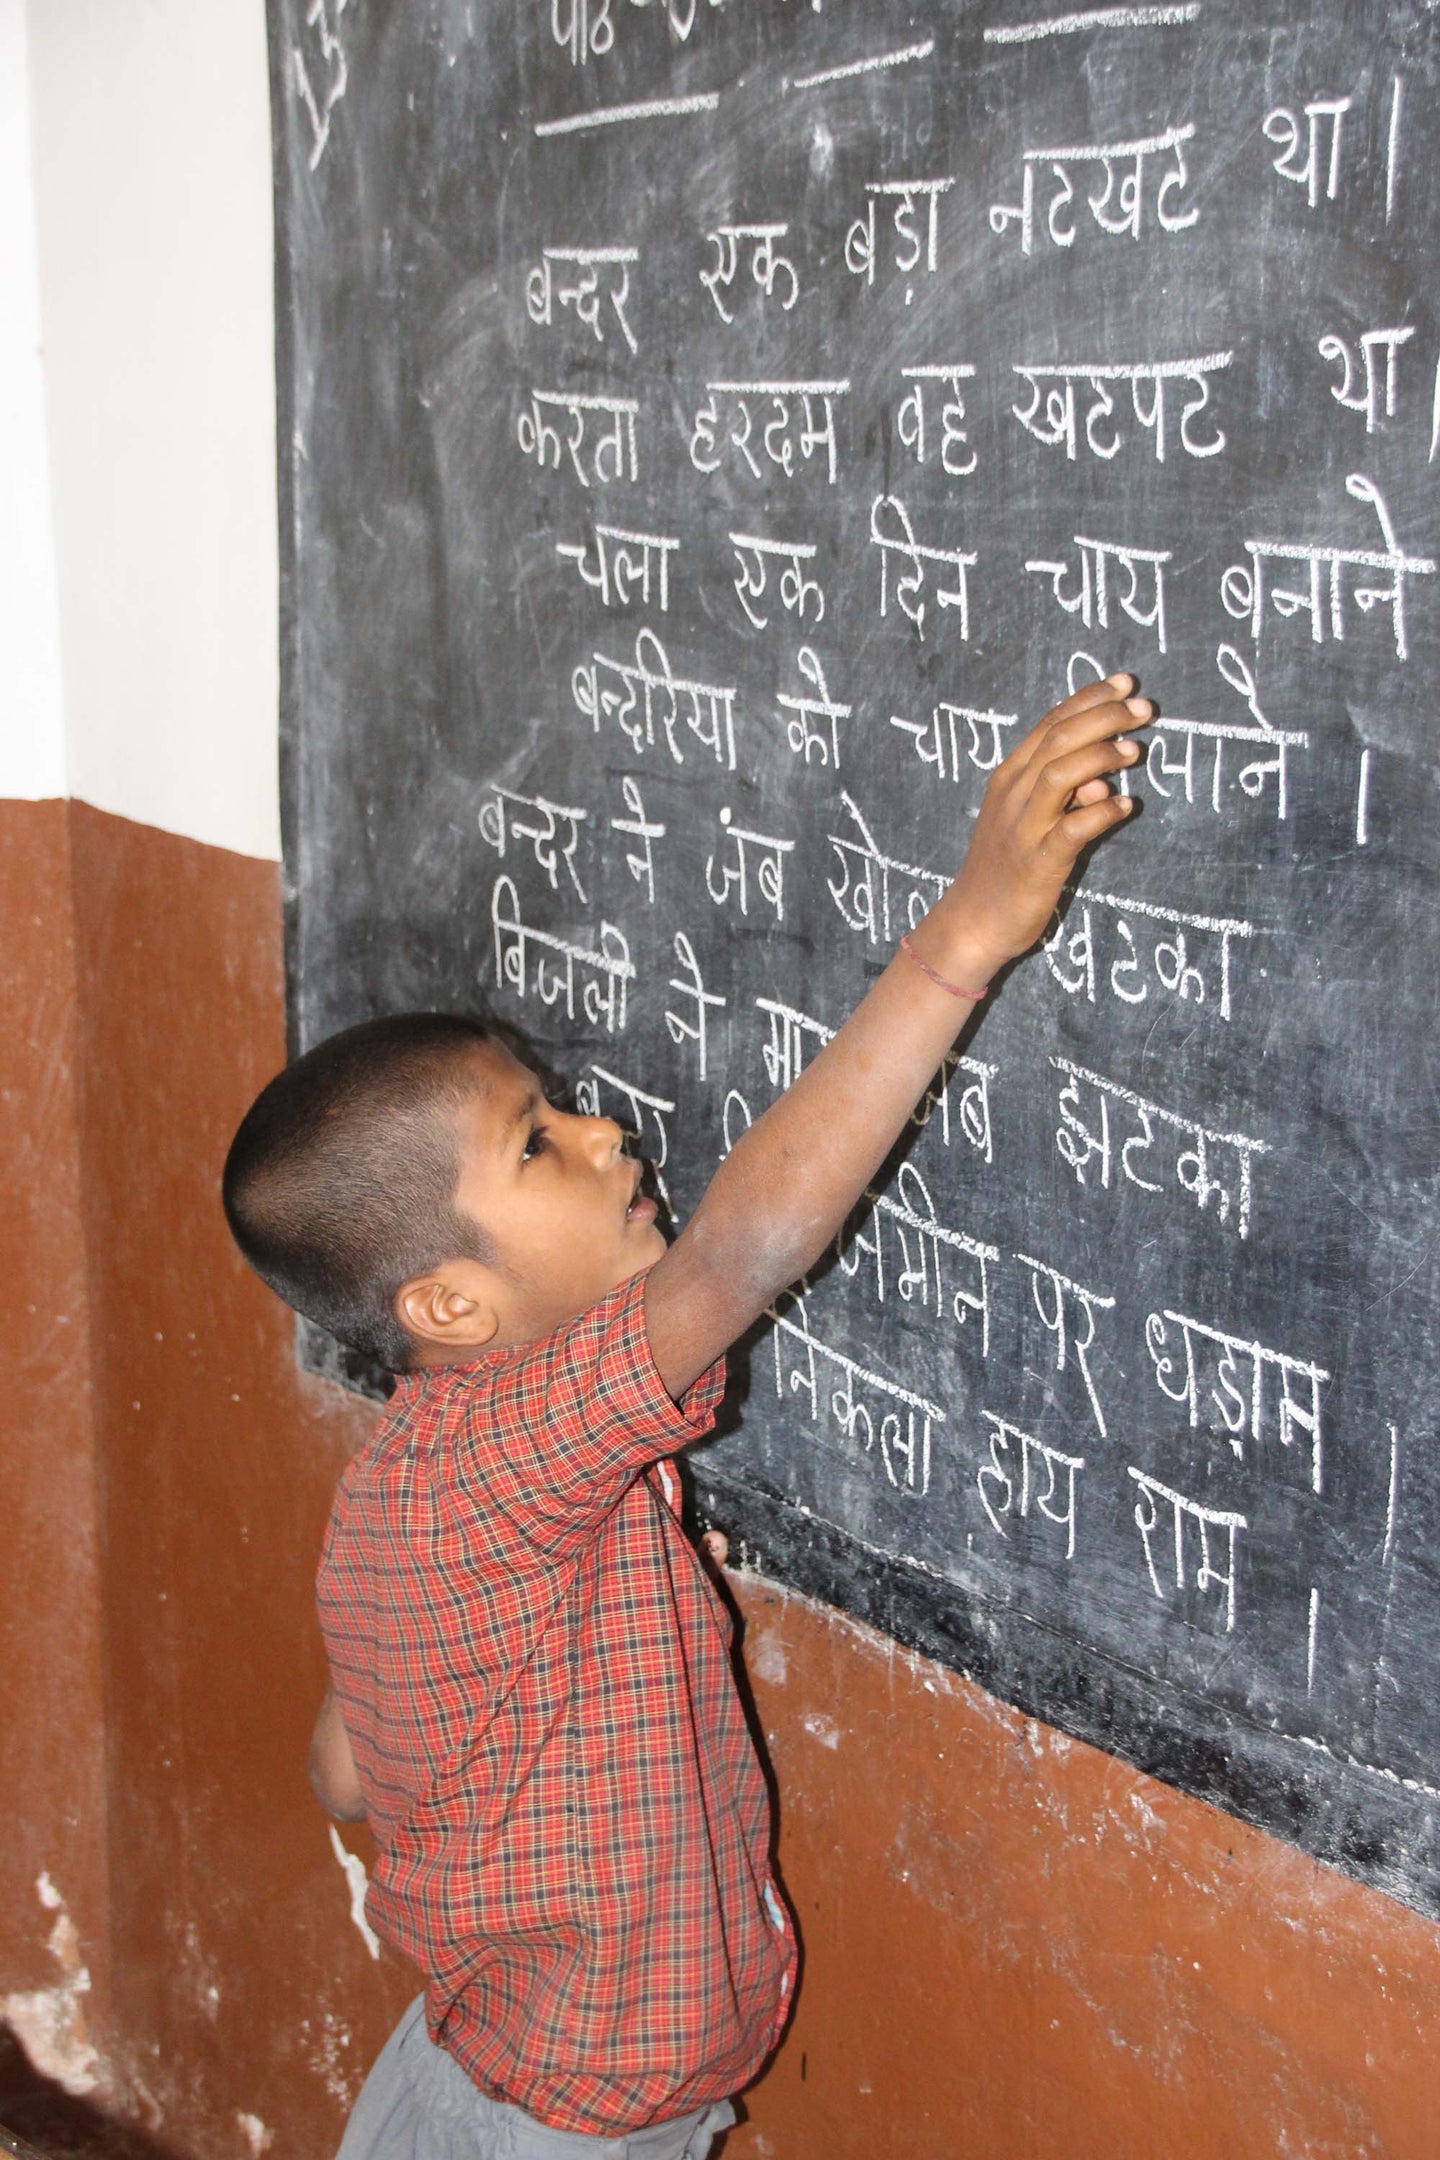 पाठ
बन्दर एक बड़ा नटखट था।
करता हरदम वह खटपट था।
चला एक दिन चाय बनाने
बन्दरिया को चाय पिलाने।
बन्दर ने जंब खोला खटका
बिजली ने मारा तब झटका
जमीन पर धड़ाम।
निकला हाय राम।